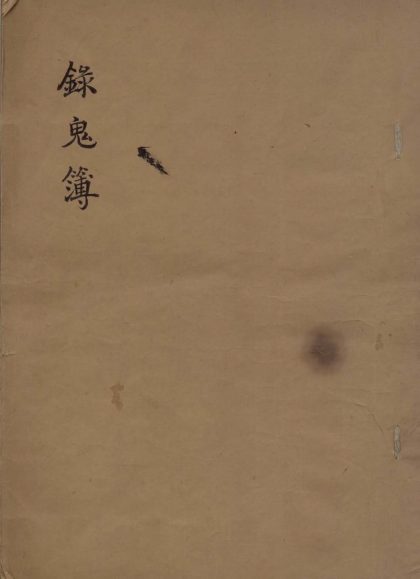 錄鬼簿